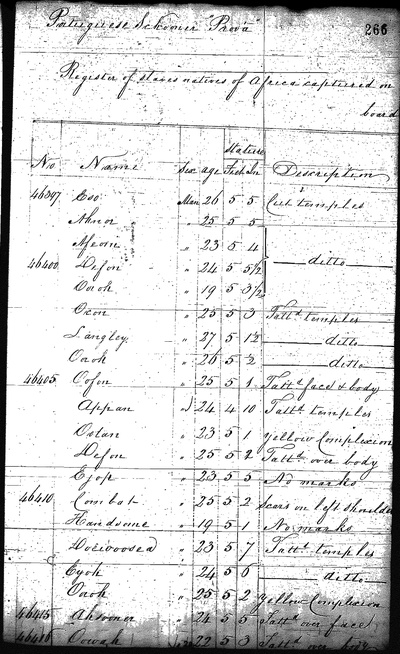 Portuguese Schooner "Prova"
266
Register of slaves natives of Africa captured on
board
Stature
No Name Sex age Feet In Description
46397 Eso Man 26 5 5 Cut temples
" 25 5 5
" 23 5 4
46400 Defon " 24 5 5½ ditto
" 19 5 3½
" 25 5 3 Tattd temples
Langley " 27 5 1½ ditto
Oaoh " 26 5 ½ ditto
46405 Cofon " 25 5 1 Tattd face & body
Appan " 24 4 10 Tattd temples
Ostan " 23 5 1 Yellow Complexion
Defon " 25 5 2 Tattd over body
Ejop " 23 5 5 No marks
46410 Combat " 25 5 2 Scars on left shoulder
Handsome " 19 5 1 No marks
" 23 5 7 Tattd temples
Eyoh " 24 5 6 ditto
Oaoh " 25 5 2 Yellow Complexion
46415 " 24 5 5 Tattd over face
46416 Oowah " 22 5 3 Tattd over body